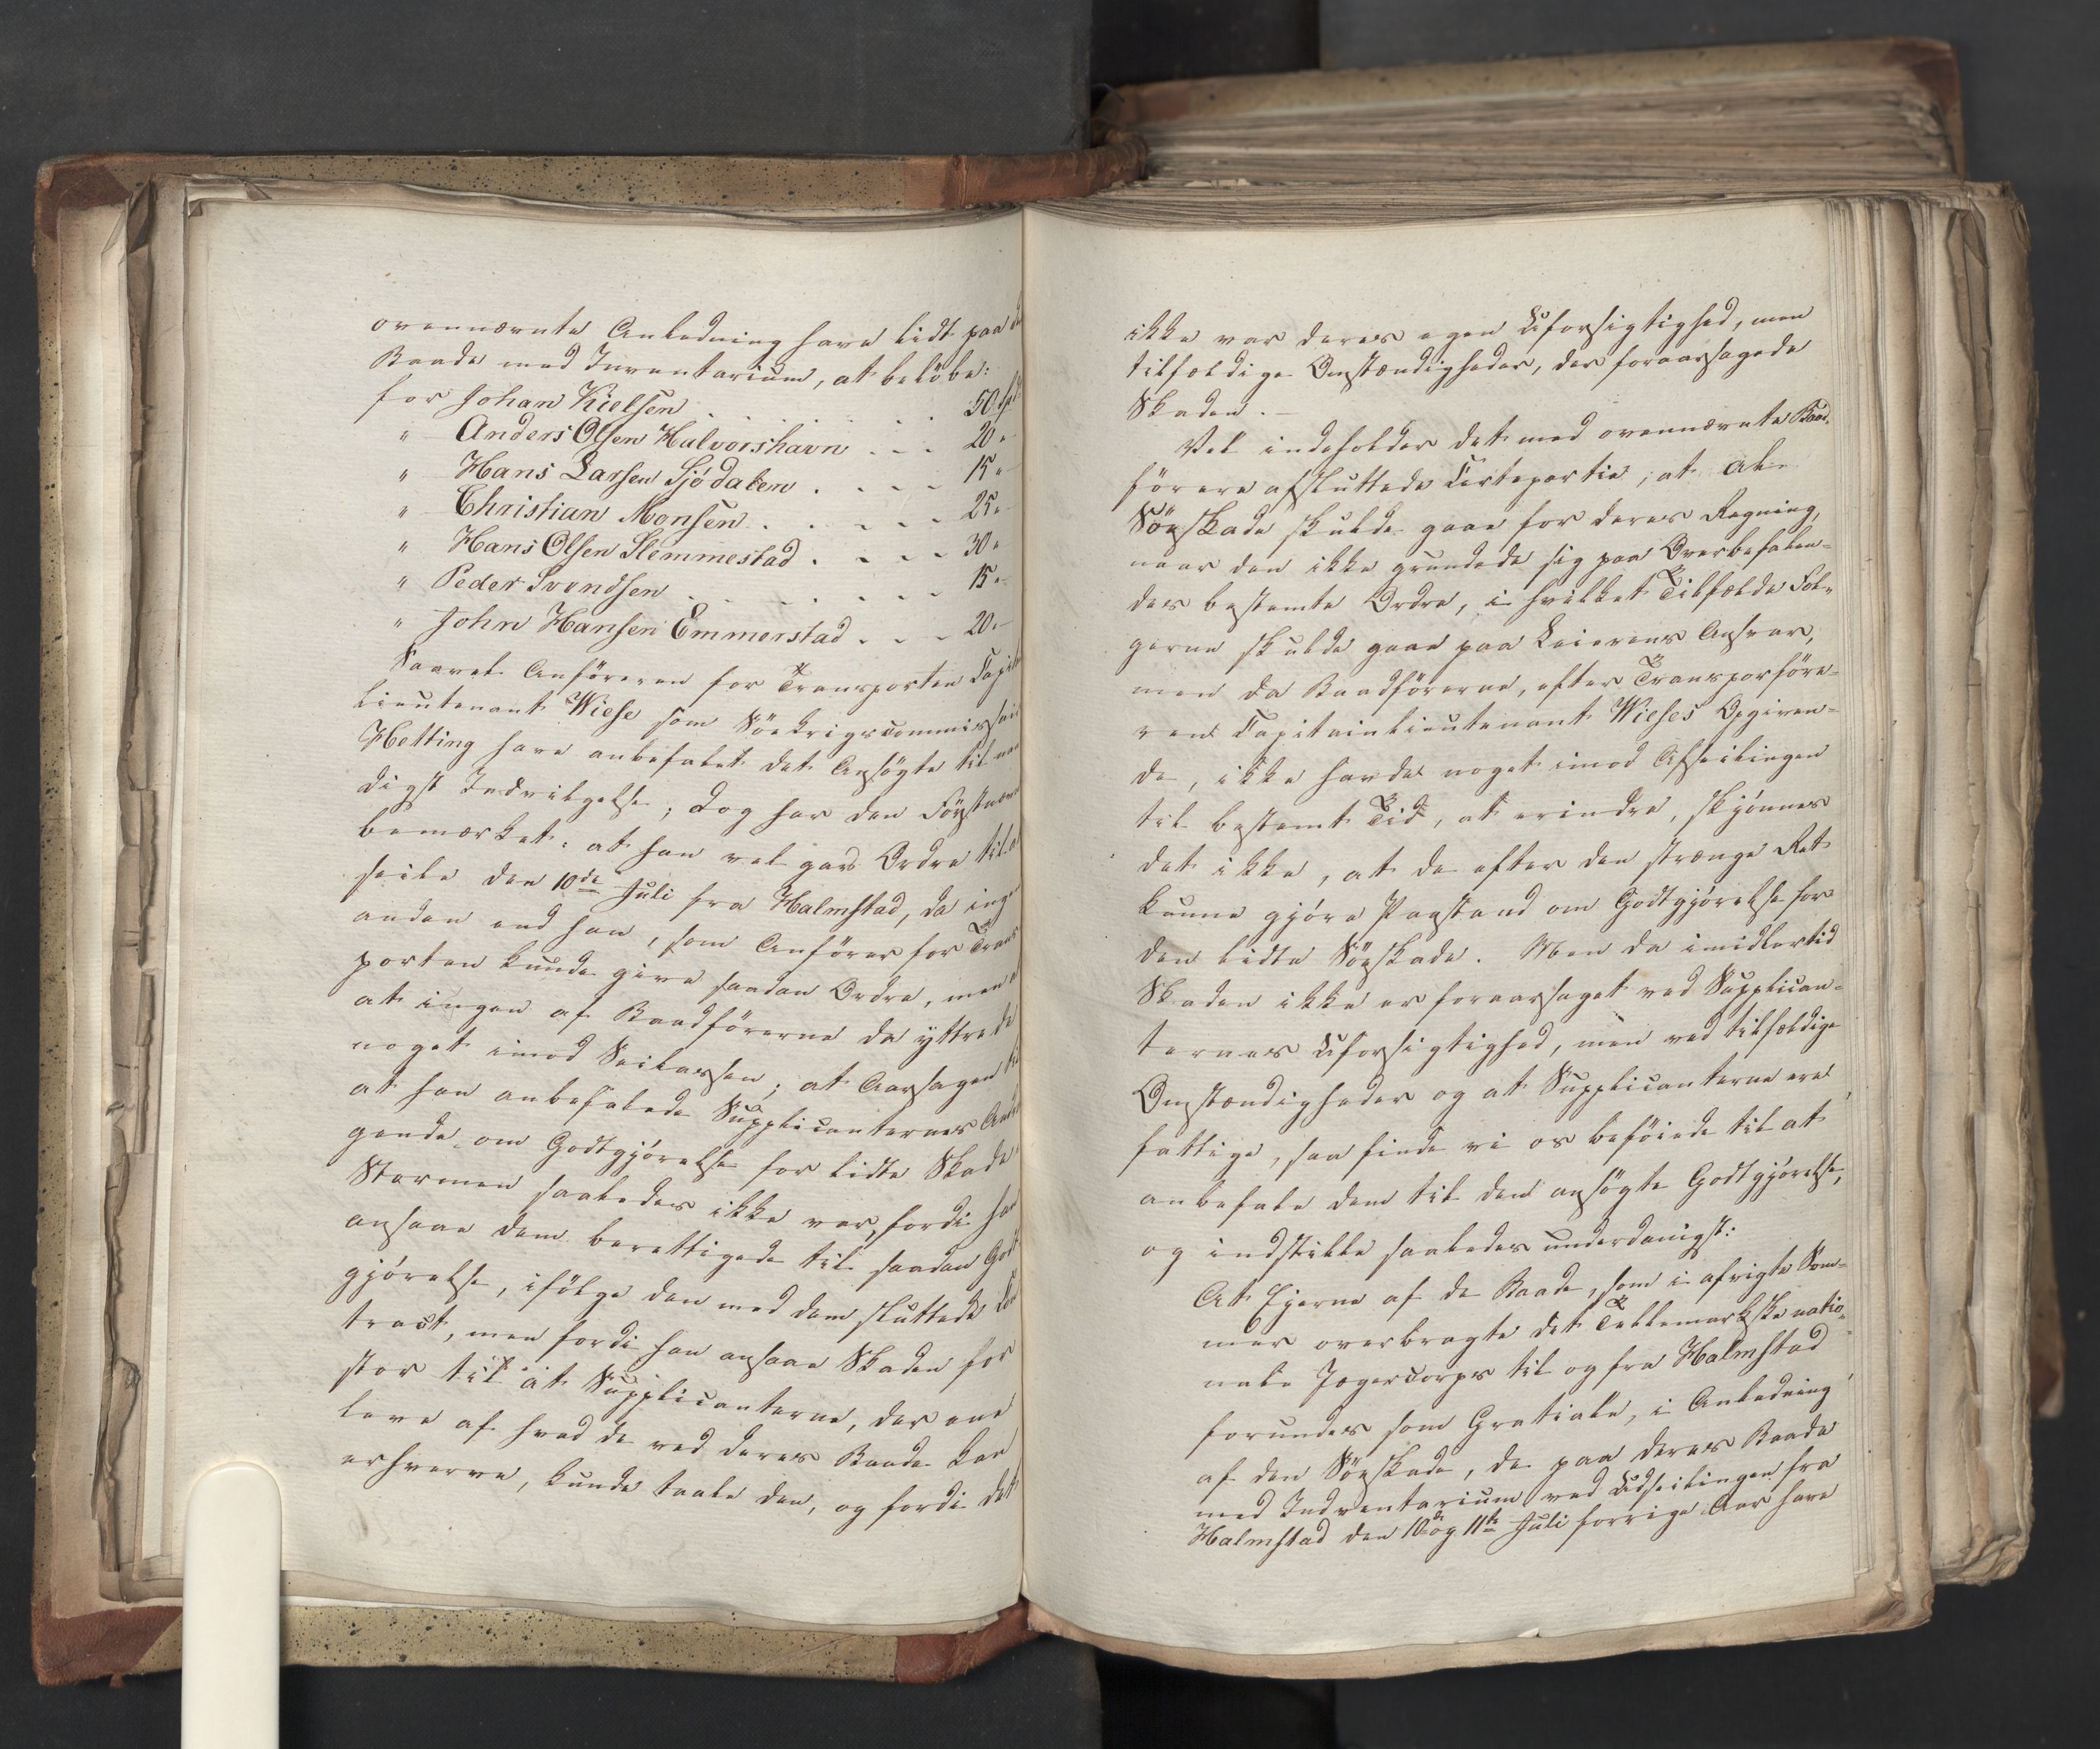 ovennævnte Anledning have lidt paa de
Baade med Inventarium, at beløbe:
for Johan Kielsen . . . . . . 50 Spd
" Anders Olsen Halvorshavn . . . 20 "
" Hans Larsen Sjödalen . . . . 15 "
" Christian Monsen . . . . . . 25 "
" Hans Olsen Slemmestad . . . . 30 "
" Peder Svendsen . . . . . . . 15 "
" John Hansen Emmerstad . . . 20 "
Saavel Anföreren for Transporten Capit
lieutenant Wiese som Söekrigscommissair
Hetting have anbefalet det Ansögte til naa
digst Indvilgelse; dog har den Förstnævn
bemærket: at han vel gav Ordre til at
seile den 10de Juli fra Halmstad, da ingen
anden end han, som Anförer for Trans
porten kunde give saadan Ordre, men
at ingen af Baadförerne da yttrede
noget imod Seiladsen; at Aarsagen til
at han anbefalede Supplicanternes Andra
gende om Godtgjörelse for lidte Skade i
Stormen saaledes ikke var, fordi han
ansaae dem berettigede til saadan Godt
gjörelse, ifölge den med dem sluttede Con
tract, men fordi han ansaae Skaden for
stor til at Supplicanterne, der ene
leve af hvad de ved deres Baade kan
erhverve, kunde taale den, og fordi det
ikke var deres egen Uforsigtighed, men
tilfældige Omstændigheder, der foraarsagede
Skaden. —
Vel indeholder det med ovennævnte Baad-
förere afsluttede Certepartie, at al
Söeskade skulde gaae for deres Regning,
naar den ikke grundede sig paa Overbefalen-
des bestemte Ordre, i hvilket Tilfælde Föl-
gerne skulde gaae paa Leierens Ansvar,
men da Baadförerne, efter Transporföre-
rens Capitainlieutenant Wieses Opgiven-
de, ikke havde noget imod Afseilingen
til bestemt Tid, at erindre, skjönnes
det ikke, at de efter den strænge Ret
kunne gjöre Paastand om Godtgjörelse for
den lidte Söeskade. Men da imidlertid
Skaden ikke er foraarsaget ved Supplican-
ternes Uforsigtighed, men ved tilfældige
Omstændigheder og at Supplicanterne ere
fattige, saa finde vi os beföiede til at
anbefale dem til den ansögte Godtgjörelse,
og indstille saaledes underdanigst:
At Eierne af de Baade, som i afvigte Som-
mer overbragte det Tellemarkske natio-
nale Jægercorps til og fra Halmstad
forundes som Gratiale, i Anledning
af den Söeskade, de paa deres Baade
med Indventarium ved Udseilingen fra
Halmstad den 10de og 11te Juli forrige Aar have